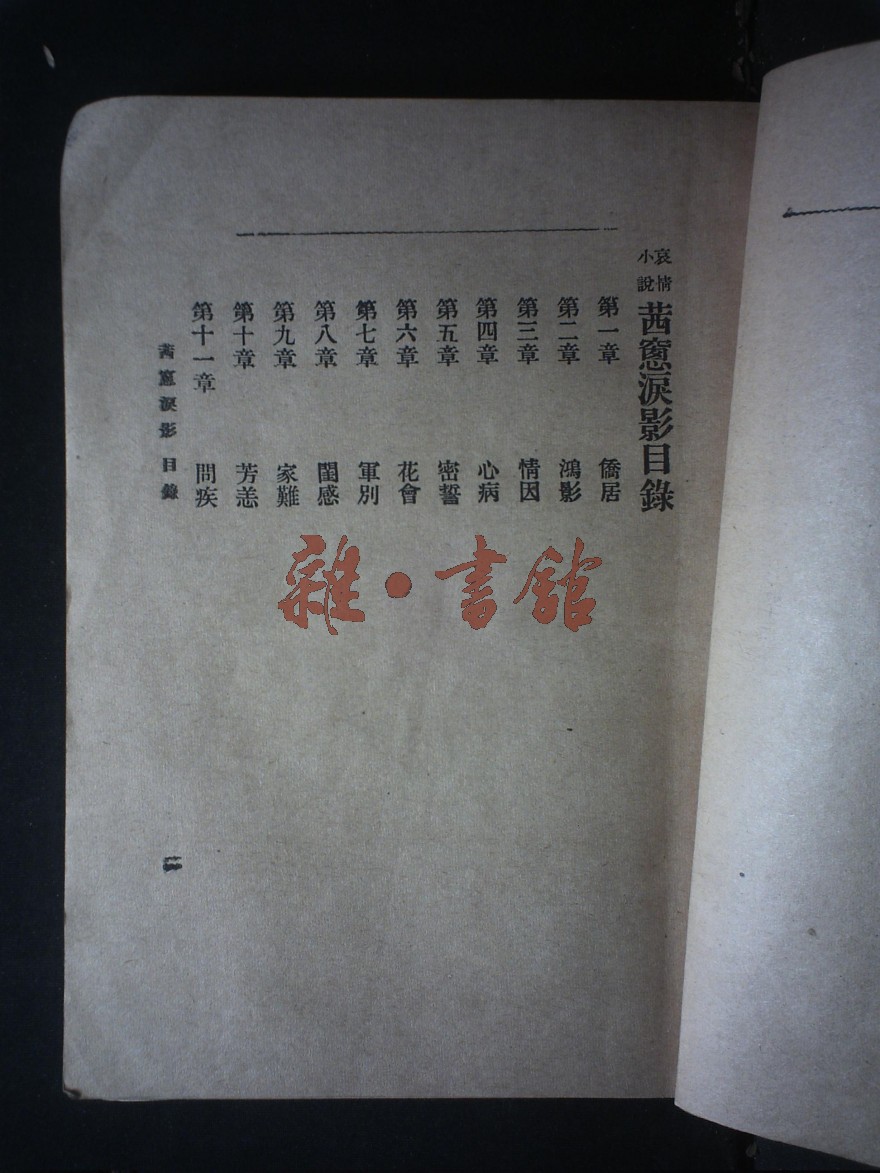 哀情小說 茜窻淚影目錄
第一章 僑居
第二章 鴻影
第三章 情因
第四章 心病
第五章 密誓
第六章 花會
第七章 軍別
第八章 閨感
第九章 家難
第十章 芳恙
第十一章 問疾
茜窻淚影 目錄
雜·書館